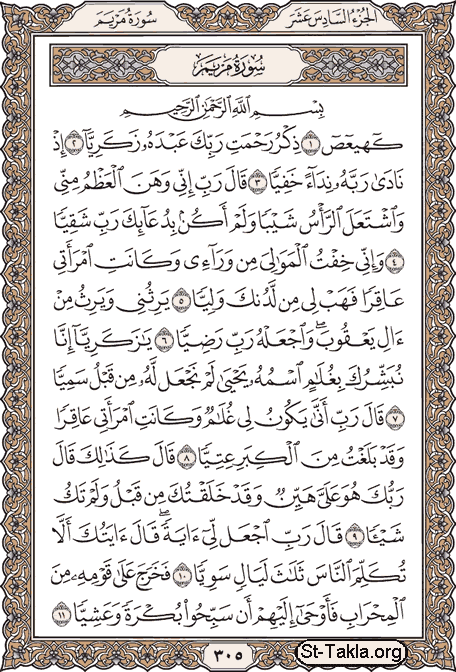 الجزء السادس عشر
سورة مريم
سورة مريم
بسم الله الرحمن الرحيم
كٓهيعٓصٓ ١ ذِكْرُ رَحْمَتِ رَبِّكَ عَبْدَهُۥ زَكَرِيَّآ ٢ إِذْ
نَادَىٰ رَبَّهُۥ نِدَآءً خَفِيًّا ٣ قَالَ رَبِّ إِنِّى وَهَنَ ٱلْعَظْمُ مِنِّى
وَٱشْتَعَلَ ٱلرَّأْسُ شَيْبًا وَلَمْ أَكُنۢ بِدُعَآئِكَ رَبِّ شَقِيًّا
٤ وَإِنِّى خِفْتُ ٱلْمَوَٰلِىَ مِن وَرَآءِى وَكَانَتِ ٱمْرَأَتِى
عَاقِرًا فَهَبْ لِى مِن لَّدُنكَ وَلِيًّا ٥ يَرِثُنِى وَيَرِثُ مِنْ
ءَالِ يَعْقُوبَ ۖ وَٱجْعَلْهُ رَبِّ رَضِيًّا ٦ يَٰزَكَرِيَّآ إِنَّا
نُبَشِّرُكَ بِغُلَٰمٍ ٱسْمُهُۥ يَحْيَىٰ لَمْ نَجْعَل لَّهُۥ مِن قَبْلُ سَمِيًّا
٧ قَالَ رَبِّ أَنَّىٰ يَكُونُ لِى غُلَٰمٌ وَكَانَتِ ٱمْرَأَتِى عَاقِرًا
وَقَدْ بَلَغْتُ مِنَ ٱلْكِبَرِ عِتِيًّا ٨ قَالَ كَذَٰلِكَ قَالَ
رَبُّكَ هُوَ عَلَىَّ هَيِّنٌ وَقَدْ خَلَقْتُكَ مِن قَبْلُ وَلَمْ تَكُ
شَيْـًٔا ٩ قَالَ رَبِّ ٱجْعَل لِّىٓ ءَايَةً ۚ قَالَ ءَايَتُكَ أَلَّا
تُكَلِّمَ ٱلنَّاسَ ثَلَٰثَ لَيَالٍ سَوِيًّا ١٠ فَخَرَجَ عَلَىٰ قَوْمِهِۦ مِنَ
ٱلْمِحْرَابِ فَأَوْحَىٰٓ إِلَيْهِمْ أَن سَبِّحُوا۟ بُكْرَةً وَعَشِيًّا ١١
٣٠٥
St-Takla.org